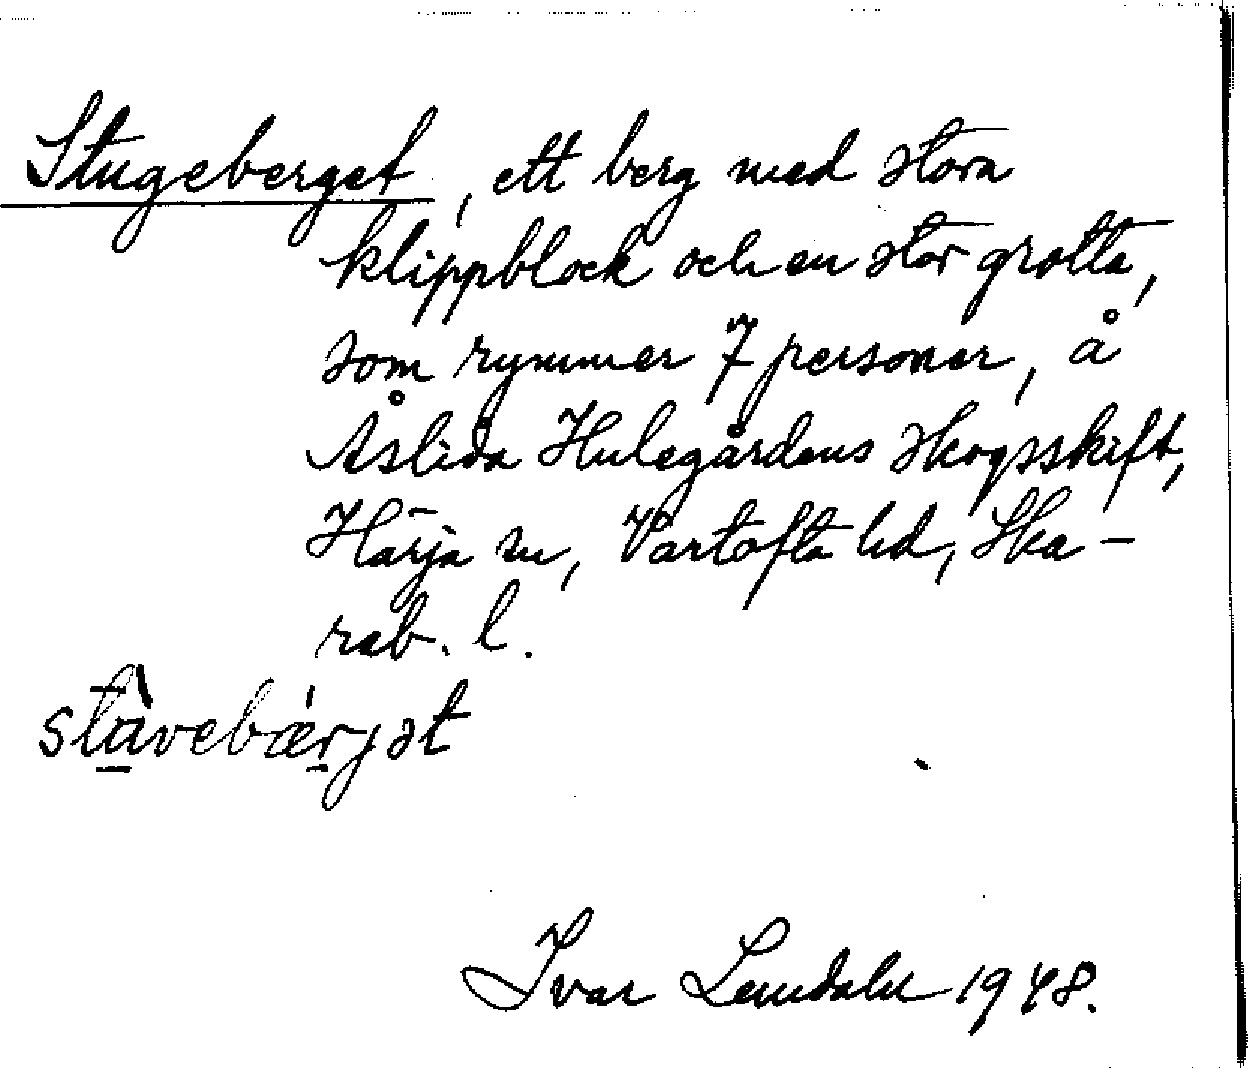 Stugeberget, ett berg med stora
klippblock och en stor grotta,
som rymmer 7 personer, å
Åslida Hulegårdens skogsskift,
Härja sn, Vartofta hd, Ska-
rab. l.
stàvebǽrjət
Ivar Lundahl 1948.